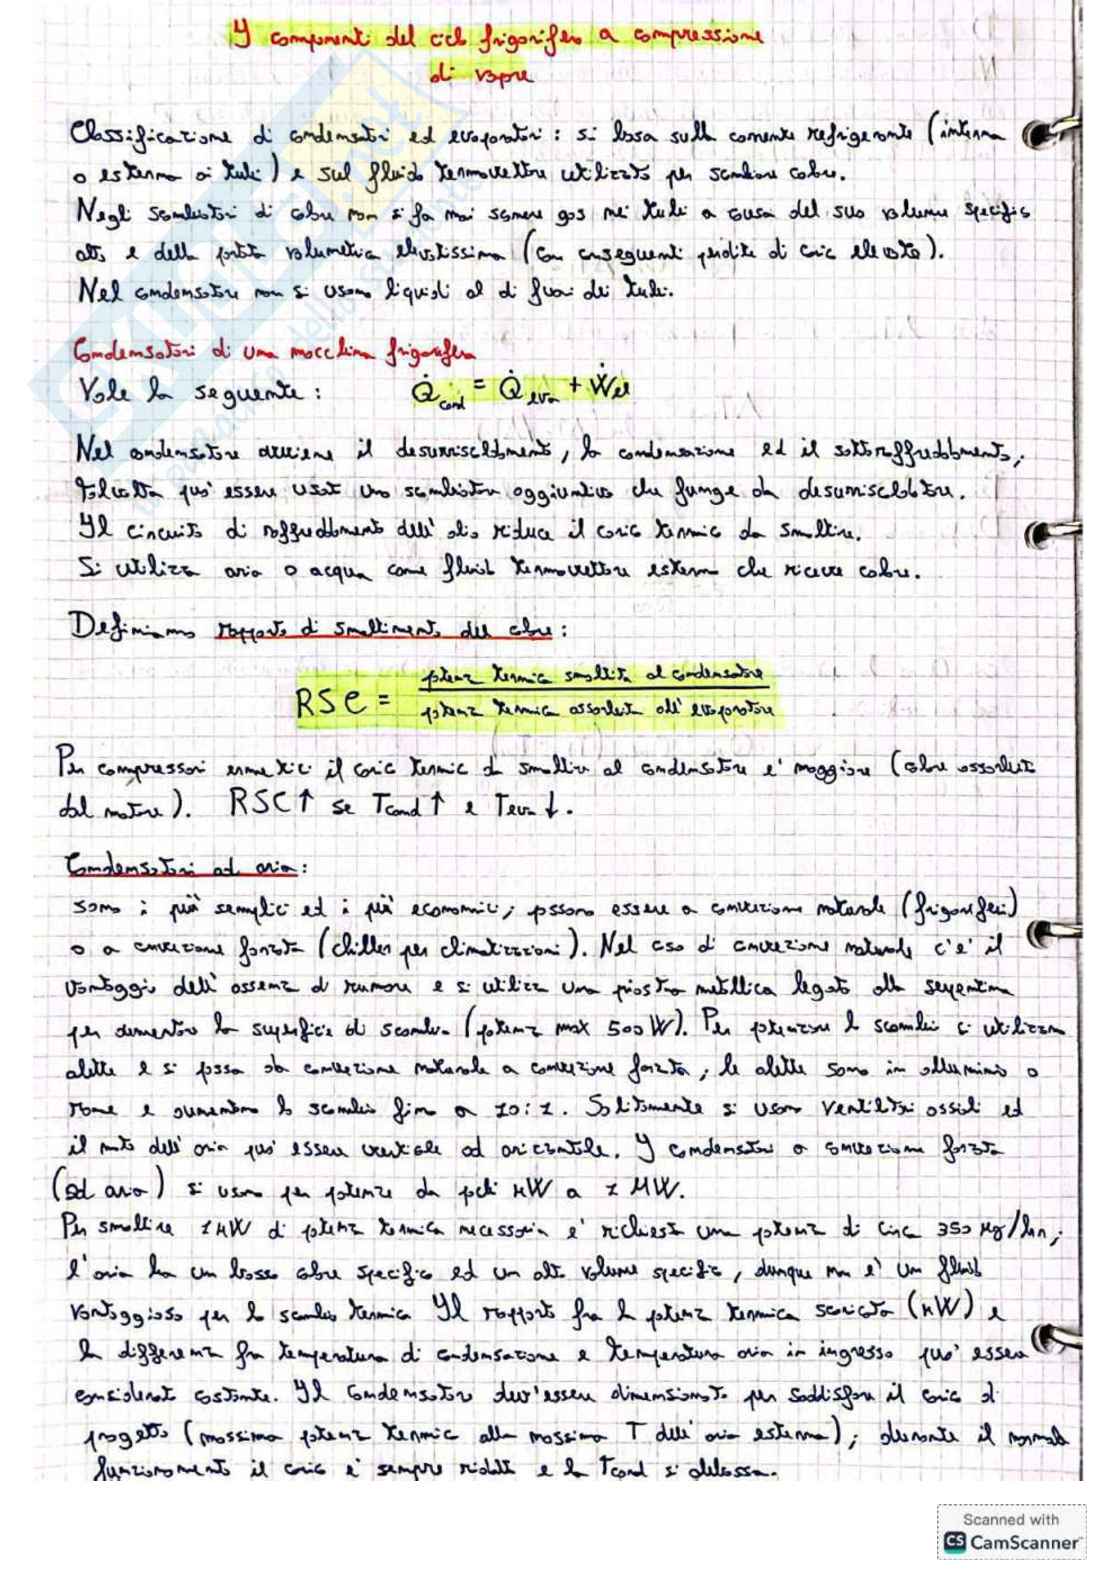 I componenti del ciclo frigorifero a compressione
di vapore
Classificazione di condensatori ed evaporatori : si basa sulla corrente refrigerante (interna
o esterna ai tubi) e sul fluido termovettore utilizzato per scambiare calore.
Negli scambiatori di calore non si fa mai scorrere gas nei tubi a causa del suo volume specifico
alto e della portata volumetrica elevatissima (con conseguenti perdite di carico elevate).
Nel condensatore non si usano liquidi al di fuori dei tubi.
Condensatori di una macchina frigorifera
Vale la seguente : Q̇cond = Q̇eva + Ẇel
Nel condensatore avviene il desurriscaldamento, la condensazione ed il sottoraffreddamento;
talvolta può essere usato uno scambiatore aggiuntivo che funge da desurriscaldatore.
Il circuito di raffreddamento dell'olio riduce il carico termico da smaltire.
Si utilizza aria o acqua come fluido termovettore esterno che riceve calore.
Definiamo rapporto di smaltimento del calore :
RSC = potenza termica smaltita al condensatore
potenza termica assorbita all'evaporatore
Per compressori ermetici il carico termico da smaltire al condensatore e' maggiore (calore assorbito
dal motore). RSC↑ se Tcond↑ e Teva↓.
Condensatori ad aria :
sono i più semplici ed i più economici; possono essere a convezione naturale (frigoriferi)
o a convezione forzata (chiller per climatizzazioni). Nel caso di convezione naturale c'e' il
vantaggio dell'assenza di rumore e si utilizza una piastra metallica legata alla serpentina
per aumentare la superficie di scambio (potenza max 500 W). Per potenziare lo scambio si utilizzano
alette e si passa da convezione naturale a convezione forzata; le alette sono in alluminio o
rame e aumentano lo scambio fino a 20:1. Solitamente si usano ventilatori assiali ed
il moto dell'aria può essere verticale od orizzontale. I condensatori a convezione forzata
(ad aria) si usano per potenze da pochi kW a 1 MW.
Per smaltire 1 kW di potenza termica necessaria e' richiesta una potenza di circa 350 kg/hn;
l'aria ha un basso calore specifico ed un alto volume specifico, dunque non e' un fluido
vantaggioso per lo scambio termico Il rapporto fra la potenza termica scaricata (kW) e
la differenza fra temperatura di condensazione e temperatura aria in ingresso può essere
considerato costante. Il condensatore dev'essere dimensionato per soddisfare il carico di
progetto (massima potenza termica alla massima T dell'aria esterna); durante il normale
funzionamento il carico e' sempre ridotto e la Tcond si abbassa.
Scanned with
CS CamScanner